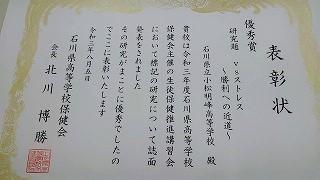 表彰状
優秀賞
研究題 vsストレス
～勝利への近道～
石川県立小松明峰高等学校 殿
貴校は令和三年度石川県高等学校
保健会主催の生徒保健推進講習会
において標記の研究について誌面
発表をされました
その研究がまことに優秀でしたの
でここに表彰いたします
令和三年八月五日
石川県高等学校保健会
会長 北川博勝